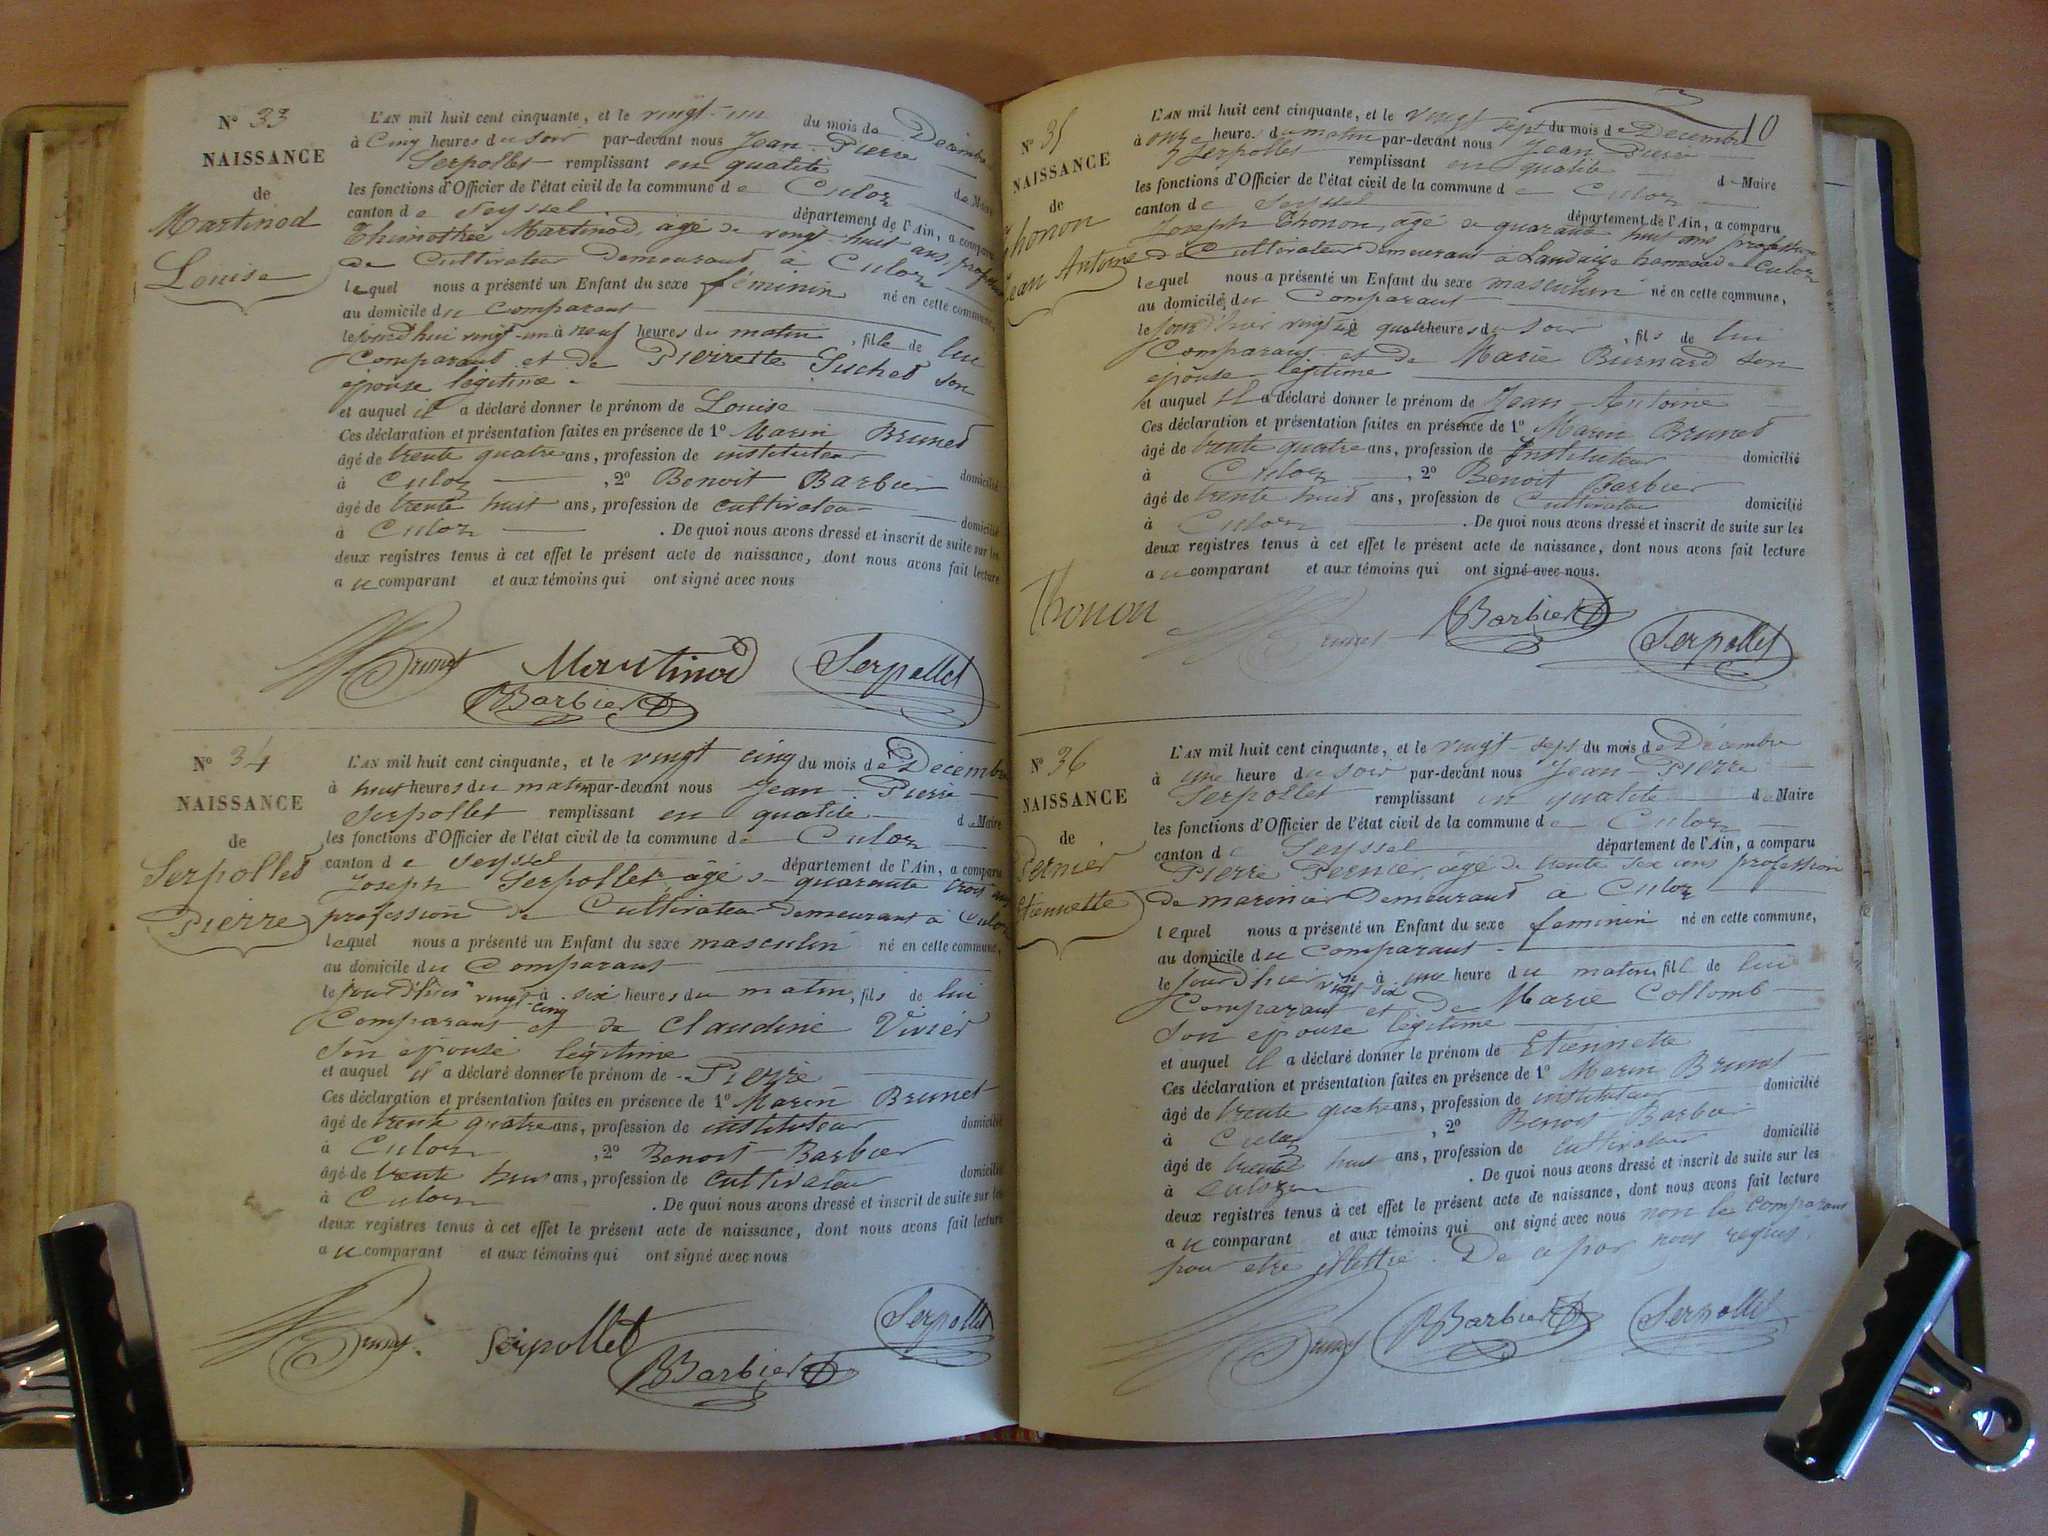 N° 33
NAISSANCE
de
Martinod
Louise
L'AN mil huit cent cinquante, et le vingt-un du mois de Décembre
à Cinq heures du soir par-devant nous Jean-Pierre
Serpollet remplissant en qualité de Maire
les fonctions d'Officier de l'état civil de la commune de Culoz
canton de Seyssel département de l'Ain, a comparu
Thimothée Martinod, âgé de vingt-huit ans, profession
de Cultivateur demeurant à Culoz
lequel nous a présenté un Enfant du sexe féminin né en cette commune,
au domicile du Comparant
le jourd'hui vingt-un à neuf heures du matin, fille de lui
Comparant et de Pierrette Suchet son
épouse légitime.
et auquel il a déclaré donner le prénom de Louise
Ces déclaration et présentation faites en présence de 1° Marin Brunet
âgé de trente quatre ans, profession de instituteur domicilié
à Culoz, 2° Benoit Barbier
âgé de trente huit ans, profession de cultivateur domicilié
à Culoz. De quoi nous avons dressé et inscrit de suite sur les
deux registres tenus à cet effet le présent acte de naissance, dont nous avons fait lecture
au comparant et aux témoins qui ont signé avec nous
Brunet Martinod Serpollet
Barbier
N° 34
NAISSANCE
de
Serpollet
Pierre
L'AN mil huit cent cinquante, et le vingt cinq du mois de Décembre
à huit heures du matin par-devant nous Jean-Pierre
Serpollet remplissant en qualité de Maire
les fonctions d'Officier de l'état civil de la commune de Culoz
canton de Seyssel département de l'Ain, a comparu
Joseph Serpollet âgé de quarante trois ans
profession de Cultivateur demeurant à Culoz
lequel nous a présenté un Enfant du sexe masculin né en cette commune,
au domicile du Comparant
le jourd'hui vingt cinq à six heures du matin, fils de lui
Comparant et de Claudine Vivier
son épouse légitime
et auquel il a déclaré donner le prénom de Pierre
Ces déclaration et présentation faites en présence de 1° Marin Brunet
âgé de trente quatre ans, profession de instituteur domicilié
à Culoz, 2° Benoit Barbier
âgé de trente huit ans, profession de cultivateur domicilié
à Culoz. De quoi nous avons dressé et inscrit de suite sur les
deux registres tenus à cet effet le présent acte de naissance, dont nous avons fait lecture
au comparant et aux témoins qui ont signé avec nous
Brunet Serpollet Serpollet
BBarbier
10
N° 35
NAISSANCE
de
Thonon
Jean Antoine
L'AN mil huit cent cinquante, et le vingt sept du mois de Décembre
à onze heures du matin par-devant nous Jean Pierre
Serpollet remplissant en qualité de Maire
les fonctions d'Officier de l'état civil de la commune de Culoz
canton de Seyssel département de l'Ain, a comparu
Joseph Thonon, âgé de quarante huit ans profession
de Cultivateur demeurant à Landaize hameau de Culoz
lequel nous a présenté un Enfant du sexe masculin né en cette commune,
au domicile du Comparant
le jour d'hier vingt six à quatre heures du soir, fils de lui
Comparant et de Marie Burnard son
épouse légitime
et auquel il a déclaré donner le prénom de Jean-Antoine
Ces déclaration et présentation faites en présence de 1° Marin Brunet
âgé de trente quatre ans, profession de Instituteur domicilié
à Culoz, 2° Benoit Barbier
âgé de trente huit ans, profession de Cultivateur domicilié
à Culoz. De quoi nous avons dressé et inscrit de suite sur les
deux registres tenus à cet effet le présent acte de naissance, dont nous avons fait lecture
au comparant et aux témoins qui ont signé avec nous.
Thonon Brunet BBarbier Serpollet
N° 36
NAISSANCE
de
Pernier
Etiennette
L'AN mil huit cent cinquante, et le vingt-sept du mois de Décembre
à une heure du soir par-devant nous Jean-Pierre
Serpollet remplissant en qualité de Maire
les fonctions d'Officier de l'état civil de la commune de Culoz
canton de Seyssel département de l'Ain, a comparu
Pierre Pernier, âgé de trente six ans profession
de marinier demeurant à Culoz
lequel nous a présenté un Enfant du sexe feminin né en cette commune,
au domicile du comparant
le jourd'hier vingt-six à une heure du matin, fille de lui
Comparant et de Marie Collomb
son épouse légitime
et auquel il a déclaré donner le prénom de Etiennette
Ces déclaration et présentation faites en présence de 1° Marin Brunet
âgé de trente quatre ans, profession de instituteur domicilié
à Culoz, 2° Benoit Barbier
âgé de trente huit ans, profession de cultivateur domicilié
à Culoz. De quoi nous avons dressé et inscrit de suite sur les
deux registres tenus à cet effet le présent acte de naissance, dont nous avons fait lecture
au comparant et aux témoins qui ont signé avec nous non le comparant
pour être illettré. De ce par nous requis.
Brunet BBarbier Serpollet